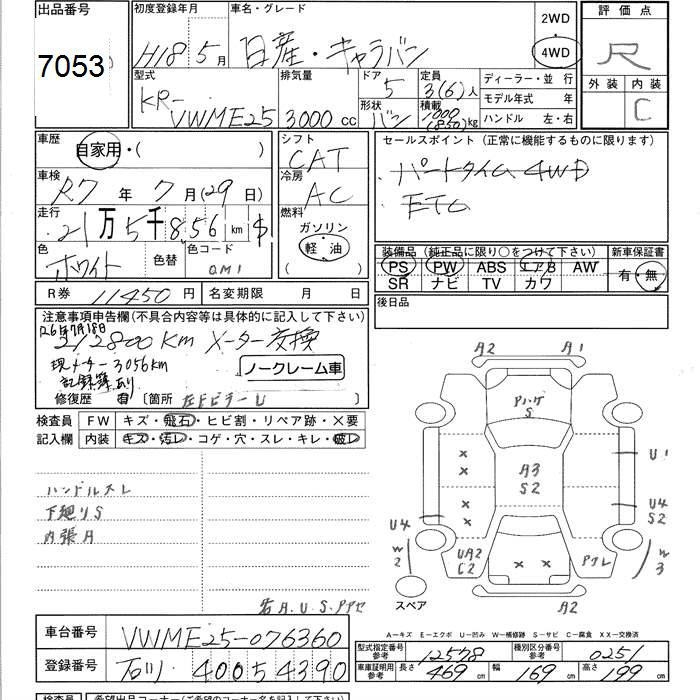 出品番号 初度登録年月 車名・グレード 2WD 評価点
7053 H18年5月 日産・キャラバン 4WD R
型式 排気量 ドア 5 定員 3(6)人 ディーラー・並行 外装 内装
KR-VWME25 3000cc 形状 バン 積載 1000(850)kg モデル年式 年 C
ハンドル 左・右
車歴 自家用・( ) シフト CAT セールスポイント (正常に機能するものに限ります)
車検 R7年7月(29日) 冷房 AC パートタイム4WD
走行 21万5千856km $ 燃料 ETC
ガソリン
軽油
( )
色 ホワイト 色替 色コード QM1
装備品 (純正品に限り○をつけて下さい) 新車保証書
PS PW ABS エアB AW 有・無
SR ナビ TV カワ
R券 11450円 名変期限 月 日 後日品
注意事項申告欄(不具合内容等は具体的に記入して下さい)
R6年7月18日
212800Km メーター交換
現メーター3056km ノークレーム車
記録簿あり
修復歴 有 〔箇所 左Fピラー U 〕
検査員 FW キズ・飛石・ヒビ割・リペア跡・×要
記入欄 内装 キズ・汚レ・コゲ・穴・スレ・キレ・破レ
ハンドルスレ
下廻りS
内張A
右A.U.S.アアセ
A2 A1
Pハゲ
S
U1
A3
S2
U4 U4
S2
W2 UA2
C2 Pクレ W3
スペア A2
A―キズ E―エクボ U―凹み W―補修跡 S―サビ C―腐食 XX―交換済
車台番号 VWME25-076360
登録番号 石川 400 5 4390
型式指定番号 参考 12578 種別区分番号 参考 0251
車庫証明用 参考 長さ 469cm 幅 169cm 高さ 199cm
検査員 希望出品コーナー(ご希望のコーナー名を記入して下さい)